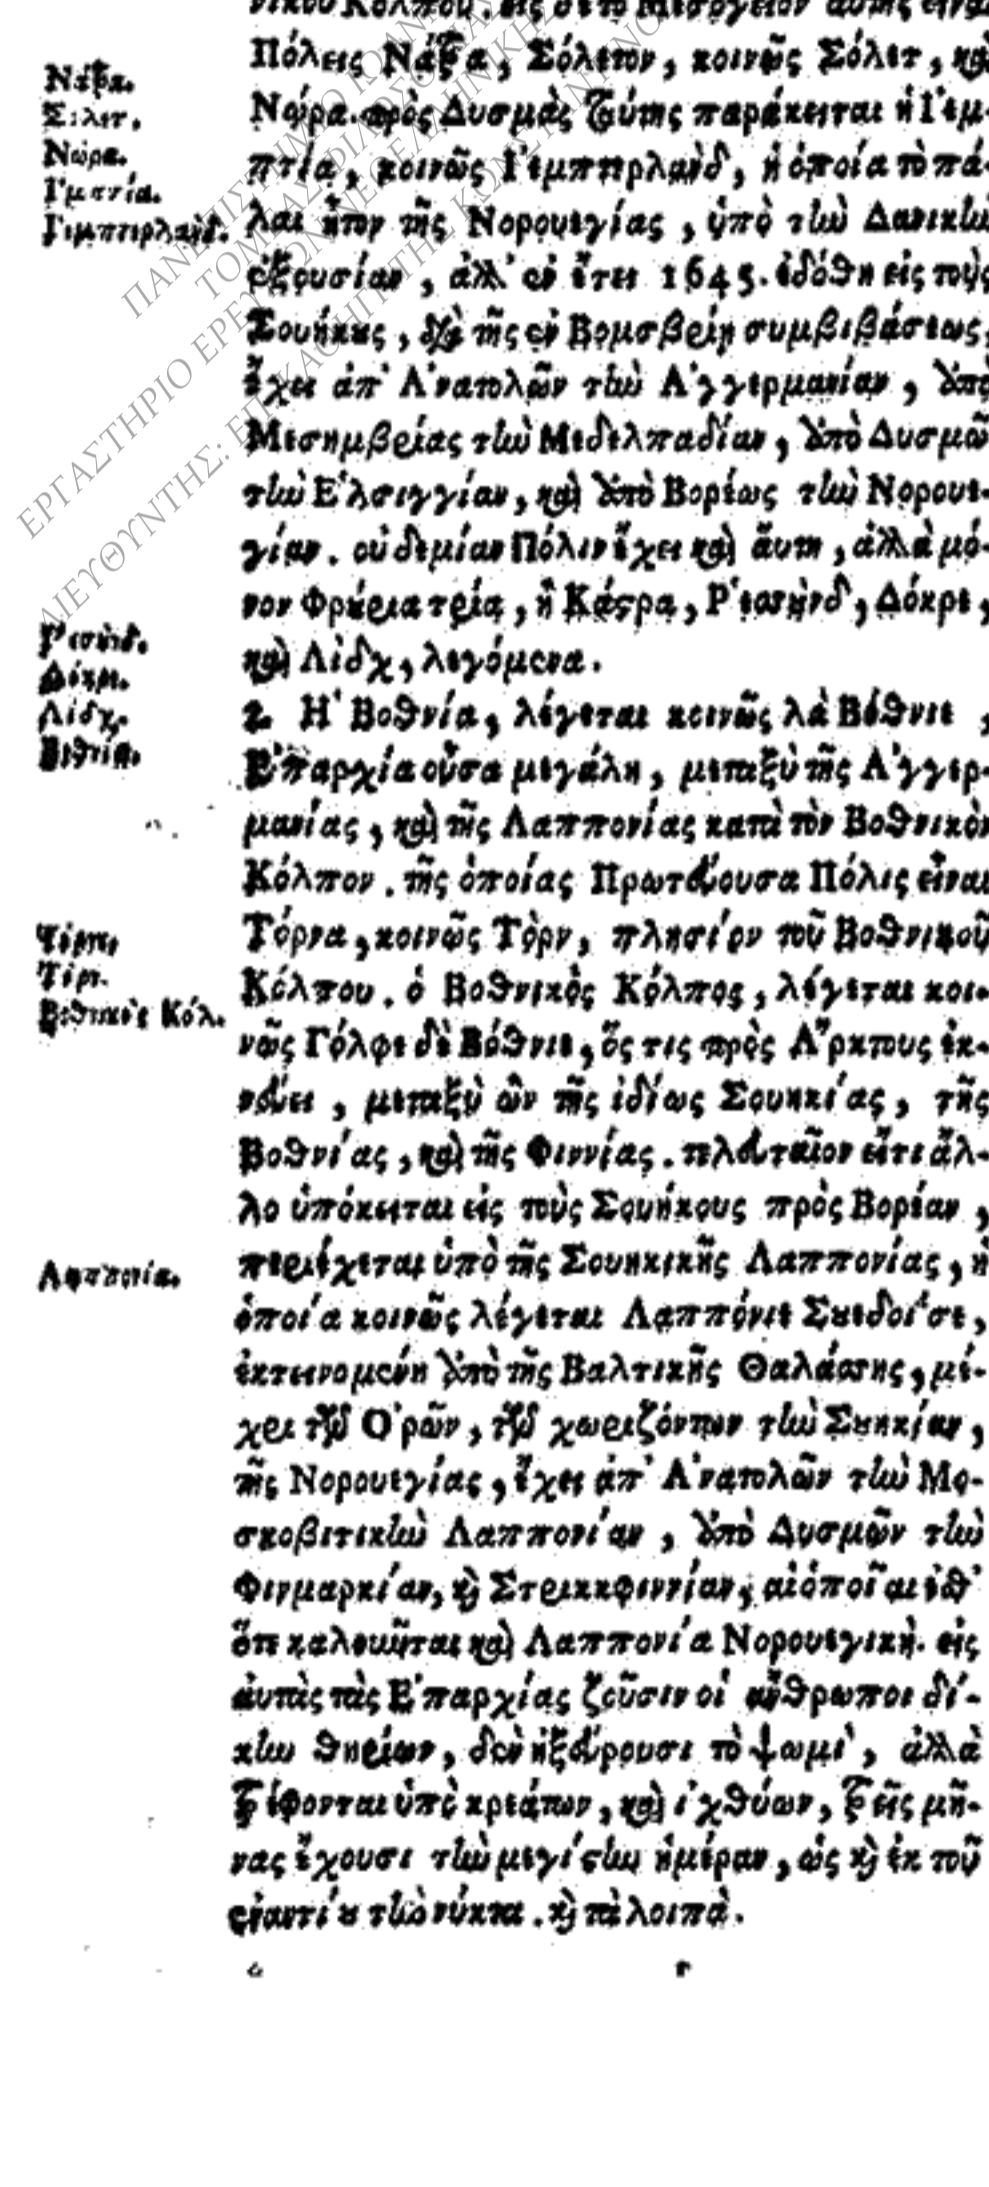 Πόλεις Νάξα, Σόλετον, κοινῶς Σόλετ, καὶ
Νώρα. πρὸς Δυσμὰς ταύτης παράκειται ἡ Γ'εμ-
πτία, κοινῶς Γ'εμπτερλαὴδ, ἡ ὁποία τὸ πά-
λαι ἦτον τῆς Νορουεγίας, ὑπὸ τὴν Δανικὴν
ἐξουσίαν, ἀλλ' ἐν ἔτει 1645. ἐδόθη εἰς τοὺς
Σουήκους, διὰ τῆς ἐν Βρμσβρίη συμβιβάσεως,
ἔχει ἀπ' Α'νατολῶν τὴν Α'γγερμανίαν, ὑπὸ
Μεσημβρίας τὴν Μεδελπαδίαν, ὑπὸ Δυσμῶν
τὴν Ε'λσιγγίαν, καὶ ὑπὸ Βορέως τὴν Νορουε-
γίαν. οὐδεμίαν Πόλιν ἔχει καὶ αὕτη, ἀλλὰ μό-
νον Φρούρια τρία, ἢ Κάστρα, Ρ'εσοὴνδ, Δόκρε,
καὶ Λὶδχ, λεγόμενα.
2. Η' Βοθνία, λέγεται κοινῶς λὰ Βόθνιε,
Ε'παρχία οὖσα μεγάλη, μεταξὺ τῆς Α'γγερ-
μανίας, καὶ τῆς Λαππονίας κατὰ τὸν Βοθνικὸν
Κόλπον. τῆς ὁποίας Πρωτεύουσα Πόλις εἶναι
Τόρνα, κοινῶς Τὸρν, πλησίον τοῦ Βοθνικοῦ
Κόλπου. ὁ Βοθνικὸς Κόλπος, λέγεται κοι-
νῶς Γόλφε δὲ Βόθνιε, ὅς τις πρὸς Α῎ρκτους ἐκ-
νεύει, μεταξὺ ὢν τῆς ἰδίως Σουηκίας, τῆς
Βοθνίας, καὶ τῆς Φιννίας. τελευταῖον εἴτι ἄλ-
λο ὑπόκειται εἰς τοὺς Σουήκους πρὸς Βορέαν,
περιέχεται ὑπὸ τῆς Σουηκικῆς Λαππονίας, ἡ
ὁποία κοινῶς λέγεται Λαππόνιε Σουεδοίσε,
ἐκτεινομένη ὑπὸ τῆς Βαλτικῆς Θαλάσσης, μέ-
χρι τῶν Ο'ρῶν, τῶν χωριζόντων τὴν Σουηκίαν,
τῆς Νορουεγίας, ἔχει ἀπ' Α'νατολῶν τὴν Μο-
σκοβιτικὴν Λαππονίαν, ὑπὸ Δυσμῶν τὴν
Φινμαρκίαν, καὶ Στρικκφιννίαν, αἱ ὁποῖαι ἐσθ'
ὅτε καλοῦνται καὶ Λαππονία Νορουεγική. εἰς
αὐτὰς τὰς Ε'παρχίας ζεῦσιν οἱ ἄνθρωποι δί-
κην θηρίων, δὲν ἠξεύρουσι τὸ ψωμὶ, ἀλλὰ
τρέφονται ὑπὸ κρεάτων, καὶ ἰχθύων, τρεῖς μῆ-
νας ἔχουσι τὴν μεγίστην ἡμέραν, ὡς καὶ ἐκ τοῦ
ἐναντίου τὴν νύκτα. καὶ τὰ λοιπὰ.
Νάξα.
Σόλετ.
Νώρα.
Γεμπτερλαὴδ.
Δόκρε.
Λίδχ.
Βοθνία.
Τόρνα,
Τόρν.
Βοθνικὸς Κόλ.
Λαππονία.